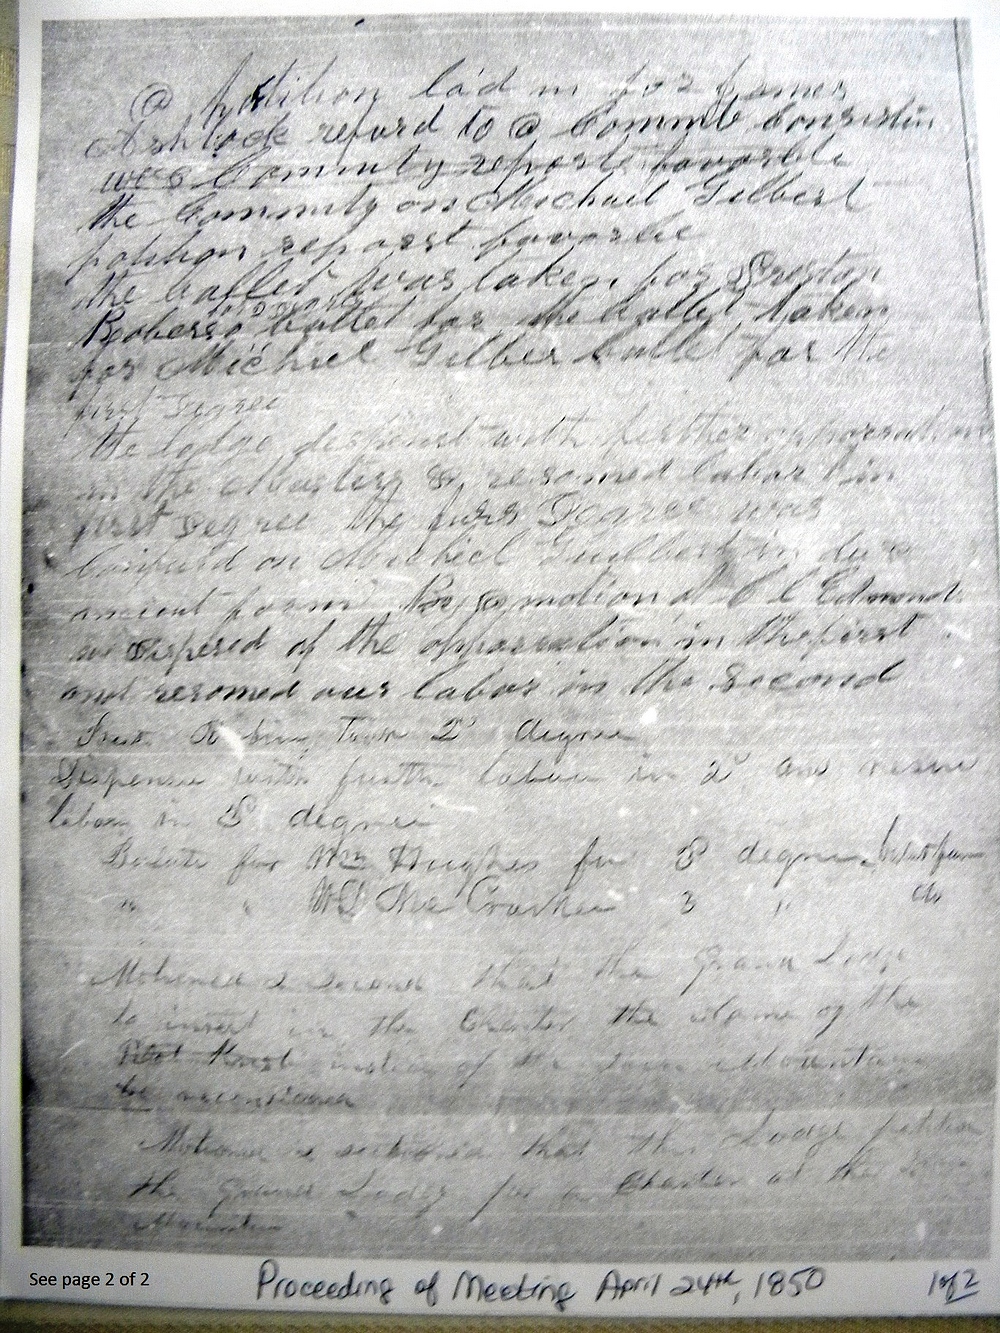 @ potition laid in for James
Ashlock refurd to @ Committe Consistin
was Committy reports favorble
the Committy on Michael Gilbert
potition reporst favorble
the ballet was taken for Preston
ballet for the ballet taken
for Michiel Gilber ballet for the
first Degree
the lodge despenst with further opporation
in the Masters & resomed labor in
first Degree the furs Degree was
on Michiel Guilbert in due
ancient form By @ motion C L Edmonds
we dispesed of the opparation in the first
and resomed our labor in the Second
took 2d degree
Dispense with further labour in 2d and resume
labor in 3d degree
Balate for Wm Hughes for 3d degree
" " W L 3 " do
Motioned & second that the Grand Lodge
to insert in the Charter the Name of the
Pilot Knob instead of the Iron Mountain
be reconsidered
Motioned & seconded that this Lodge petition
the Grand Lodge for a Charter at the Iron
Mountain
See page 2 of 2
Proceeding of Meeting April 24th, 1850
1 of 2